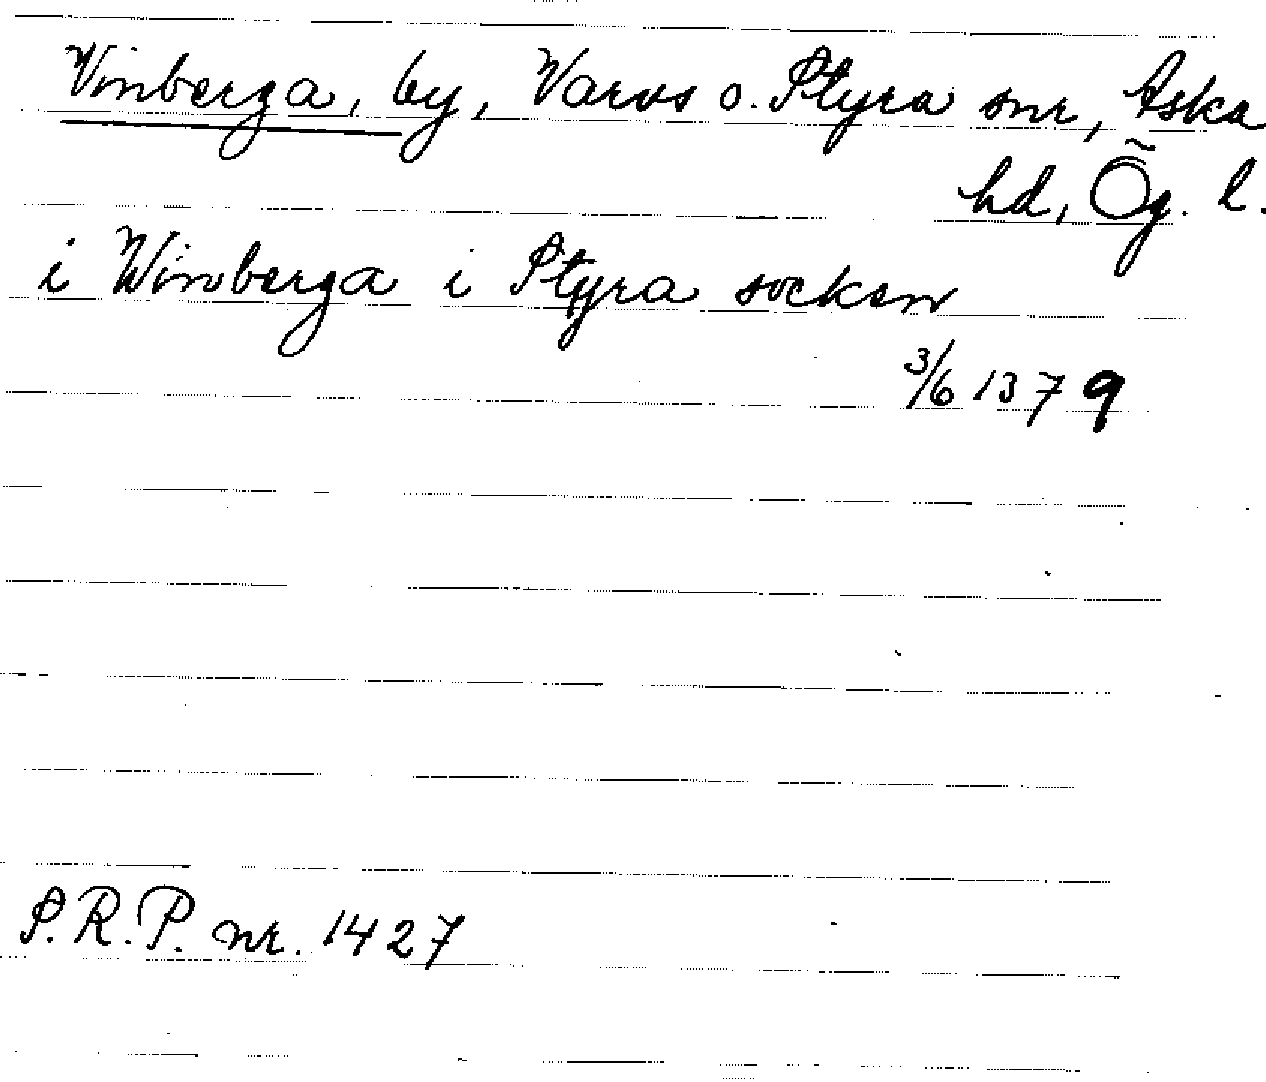 Vinberga, by, Varvs o. Styra snr, Aska
hd, Ög. l.
i Winberga i Styra socken
3/6 1379
S.R.P. nr. 1427